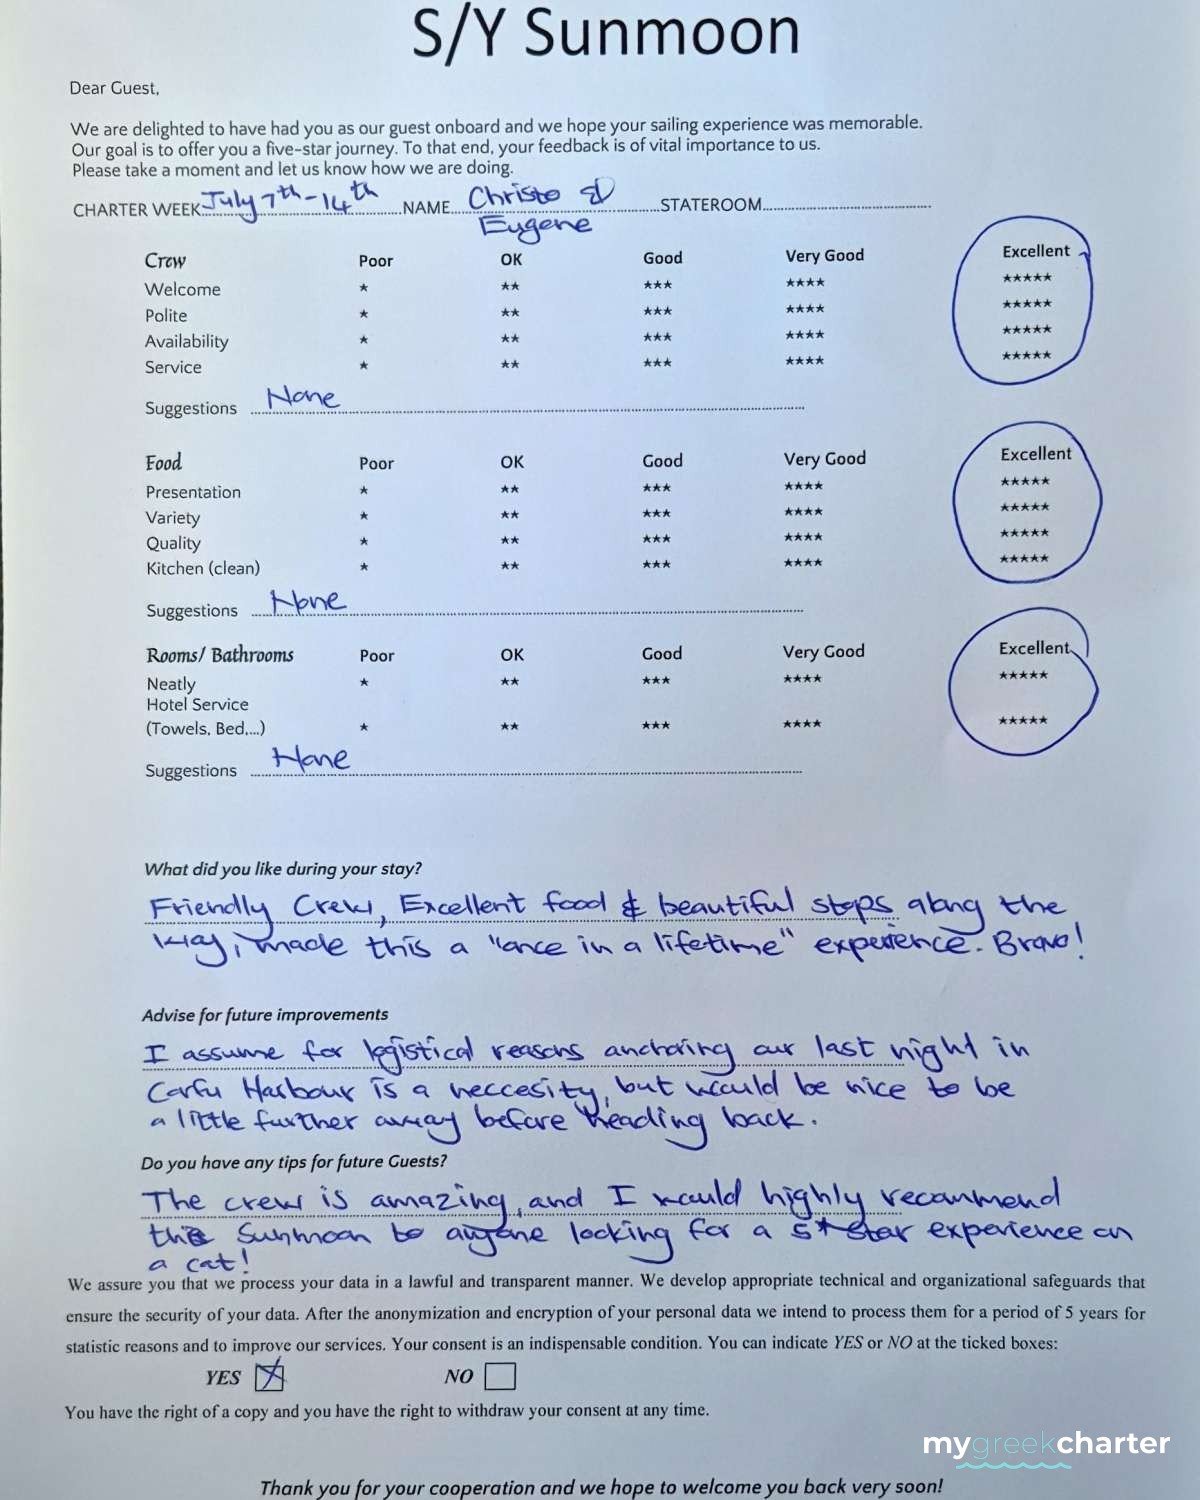 S/Y Sunmoon
Dear Guest,
We are delighted to have had you as our guest onboard and we hope your sailing experience was memorable.
Our goal is to offer you a five-star journey. To that end, your feedback is of vital importance to us.
Please take a moment and let us know how we are doing.
CHARTER WEEK July 7th - 14th NAME Christo & STATEROOM
Eugene
Crew Poor OK Good Very Good Excellent
Welcome ★ ★★ ★★★ ★★★★ ★★★★★
Polite ★ ★★ ★★★ ★★★★ ★★★★★
Availability ★ ★★ ★★★ ★★★★ ★★★★★
Service ★ ★★ ★★★ ★★★★ ★★★★★
Suggestions None
Food Poor OK Good Very Good Excellent
Presentation ★ ★★ ★★★ ★★★★ ★★★★★
Variety ★ ★★ ★★★ ★★★★ ★★★★★
Quality ★ ★★ ★★★ ★★★★ ★★★★★
Kitchen (clean) ★ ★★ ★★★ ★★★★ ★★★★★
Suggestions None
Rooms/ Bathrooms Poor OK Good Very Good Excellent
Neatly ★ ★★ ★★★ ★★★★ ★★★★★
Hotel Service
(Towels, Bed,...) ★ ★★ ★★★ ★★★★ ★★★★★
Suggestions None
What did you like during your stay?
Friendly Crew, Excellent food & beautiful stops along the
way, made this a "once in a lifetime" experience. Bravo!
Advise for future improvements
I assume for logistical reasons anchoring our last night in
Corfu Harbour is a neccesity, but would be nice to be
a little further away before heading back.
Do you have any tips for future Guests?
The crew is amazing, and I would highly recommend
the Sunmoon to anyone looking for a 5* star experience on
a cat!
We assure you that we process your data in a lawful and transparent manner. We develop appropriate technical and organizational safeguards that
ensure the security of your data. After the anonymization and encryption of your personal data we intend to process them for a period of 5 years for
statistic reasons and to improve our services. Your consent is an indispensable condition. You can indicate YES or NO at the ticked boxes:
YES NO
You have the right of a copy and you have the right to withdraw your consent at any time.
mygreekcharter
Thank you for your cooperation and we hope to welcome you back very soon!